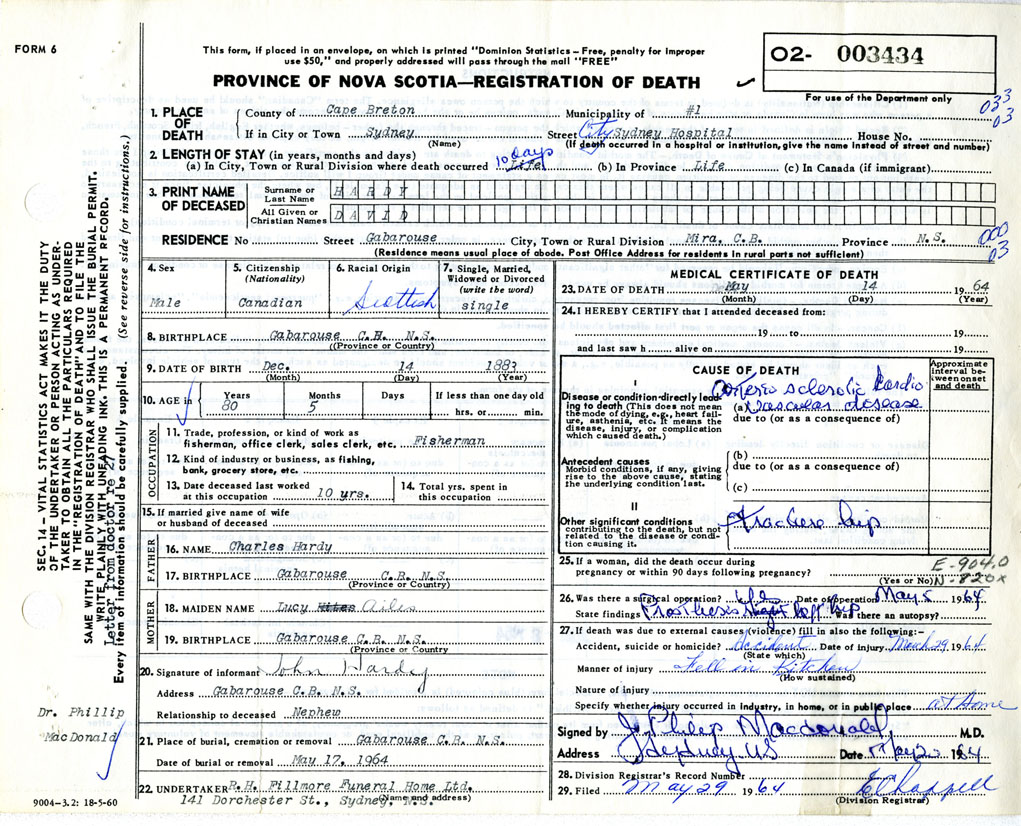 FORM 6
This form, if placed in an envelope, on which is printed "Dominion Statistics – Free, penalty for improper
use $50," and properly addressed will pass through the mail "FREE"
PROVINCE OF NOVA SCOTIA—REGISTRATION OF DEATH
02- 003434
For use of the Department only
033
03
1. PLACE OF DEATH
County of Cape Breton Municipality of #1
If in City or Town Sydney Street City Sydney Hospital House No.
(Name) (If death occurred in a hospital or institution, give the name instead of street and number)
2. LENGTH OF STAY (in years, months and days)
10 days
(a) In City, Town or Rural Division where death occurred Life (b) In Province Life (c) In Canada (if immigrant)
3. PRINT NAME OF DECEASED
Surname or Last Name HARDY
All Given or Christian Names DAVID
000
03
RESIDENCE No Street Gabarouse City, Town or Rural Division Mira, C.B. Province N.S.
(Residence means usual place of abode. Post Office Address for residents in rural parts not sufficient)
4. Sex
Male
5. Citizenship
(Nationality)
Canadian
6. Racial Origin
Scottish
7. Single, Married, Widowed or Divorced
(write the word)
single
8. BIRTHPLACE Gabarouse C.H. N.S.
(Province or Country)
9. DATE OF BIRTH Dec. 14 1883
(Month) (Day) (Year)
10. AGE in
Years 80
Months 5
Days
If less than one day old
hrs. or min.
OCCUPATION
11. Trade, profession, or kind of work as
fisherman, office clerk, sales clerk, etc. Fisherman
12. Kind of industry or business, as fishing,
bank, grocery store, etc.
13. Date deceased last worked
at this occupation 10 yrs.
14. Total yrs. spent in
this occupation
15. If married give name of wife
or husband of deceased
FATHER
16. NAME Charles Hardy
17. BIRTHPLACE Gabarouse C.B. N.S.
(Province or Country)
MOTHER
18. MAIDEN NAME Lucy Ailes
19. BIRTHPLACE Gabarouse C.B. N.S.
(Province or Country)
20. Signature of informant John Hardy
Address Gabarouse C.B. N.S.
Relationship to deceased Nephew
21. Place of burial, cremation or removal Gabarouse C.B. N.S.
Date of burial or removal May 17, 1964
22. UNDERTAKER R.H. Fillmore Funeral Home Ltd.
141 Dorchester St., Sydney, N.S.
(Name and address)
MEDICAL CERTIFICATE OF DEATH
23. DATE OF DEATH May 14 1964
(Month) (Day) (Year)
24. I HEREBY CERTIFY that I attended deceased from:
19 to 19
and last saw h alive on 19
CAUSE OF DEATH
Approximate interval between onset and death
I
Disease or condition directly leading to death (This does not mean the mode of dying, e.g., heart failure, asthenia, etc. It means the disease, injury, or complication which caused death.)
(a) Arterio sclerotic Cardio
vascular disease
due to (or as a consequence of)
Antecedent causes
Morbid conditions, if any, giving rise to the above cause, stating the underlying condition last.
(b)
due to (or as a consequence of)
(c)
II
Other significant conditions contributing to the death, but not related to the disease or condition causing it.
Fracture hip
25. If a woman, did the death occur during
pregnancy or within 90 days following pregnancy?
(Yes or No)
E-904.0
N-820x
26. Was there a surgical operation? Yes Date of operation May 5 1964
State findings Prosthesis left hip Was there an autopsy?
27. If death was due to external causes (violence) fill in also the following:-
Accident, suicide or homicide? Accident Date of injury March 29 1964
(State which)
Manner of injury Fell in Kitchen
(How sustained)
Nature of injury
Specify whether injury occurred in industry, in home, or in public place at Home
Signed by J. Philip Macdonald, M.D.
Address Date May 20 1964
28. Division Registrar's Record Number
29. Filed May 29 1964
(Division Registrar)
SEC. 14 – VITAL STATISTICS ACT MAKES IT THE DUTY
OF THE UNDERTAKER OR PERSON ACTING AS UNDER-
TAKER TO OBTAIN ALL THE PARTICULARS REQUIRED
IN THE "REGISTRATION OF DEATH" AND TO FILE THE
SAME WITH THE DIVISION REGISTRAR WHO SHALL ISSUE THE BURIAL PERMIT.
WRITE PLAINLY WITH UNFADING INK. THIS IS A PERMANENT RECORD.
Letter from doctor re 27
Every item of information should be carefully supplied. (See reverse side for instructions.)
Dr. Phillip
MacDonald
9004–3.2: 18-5-60